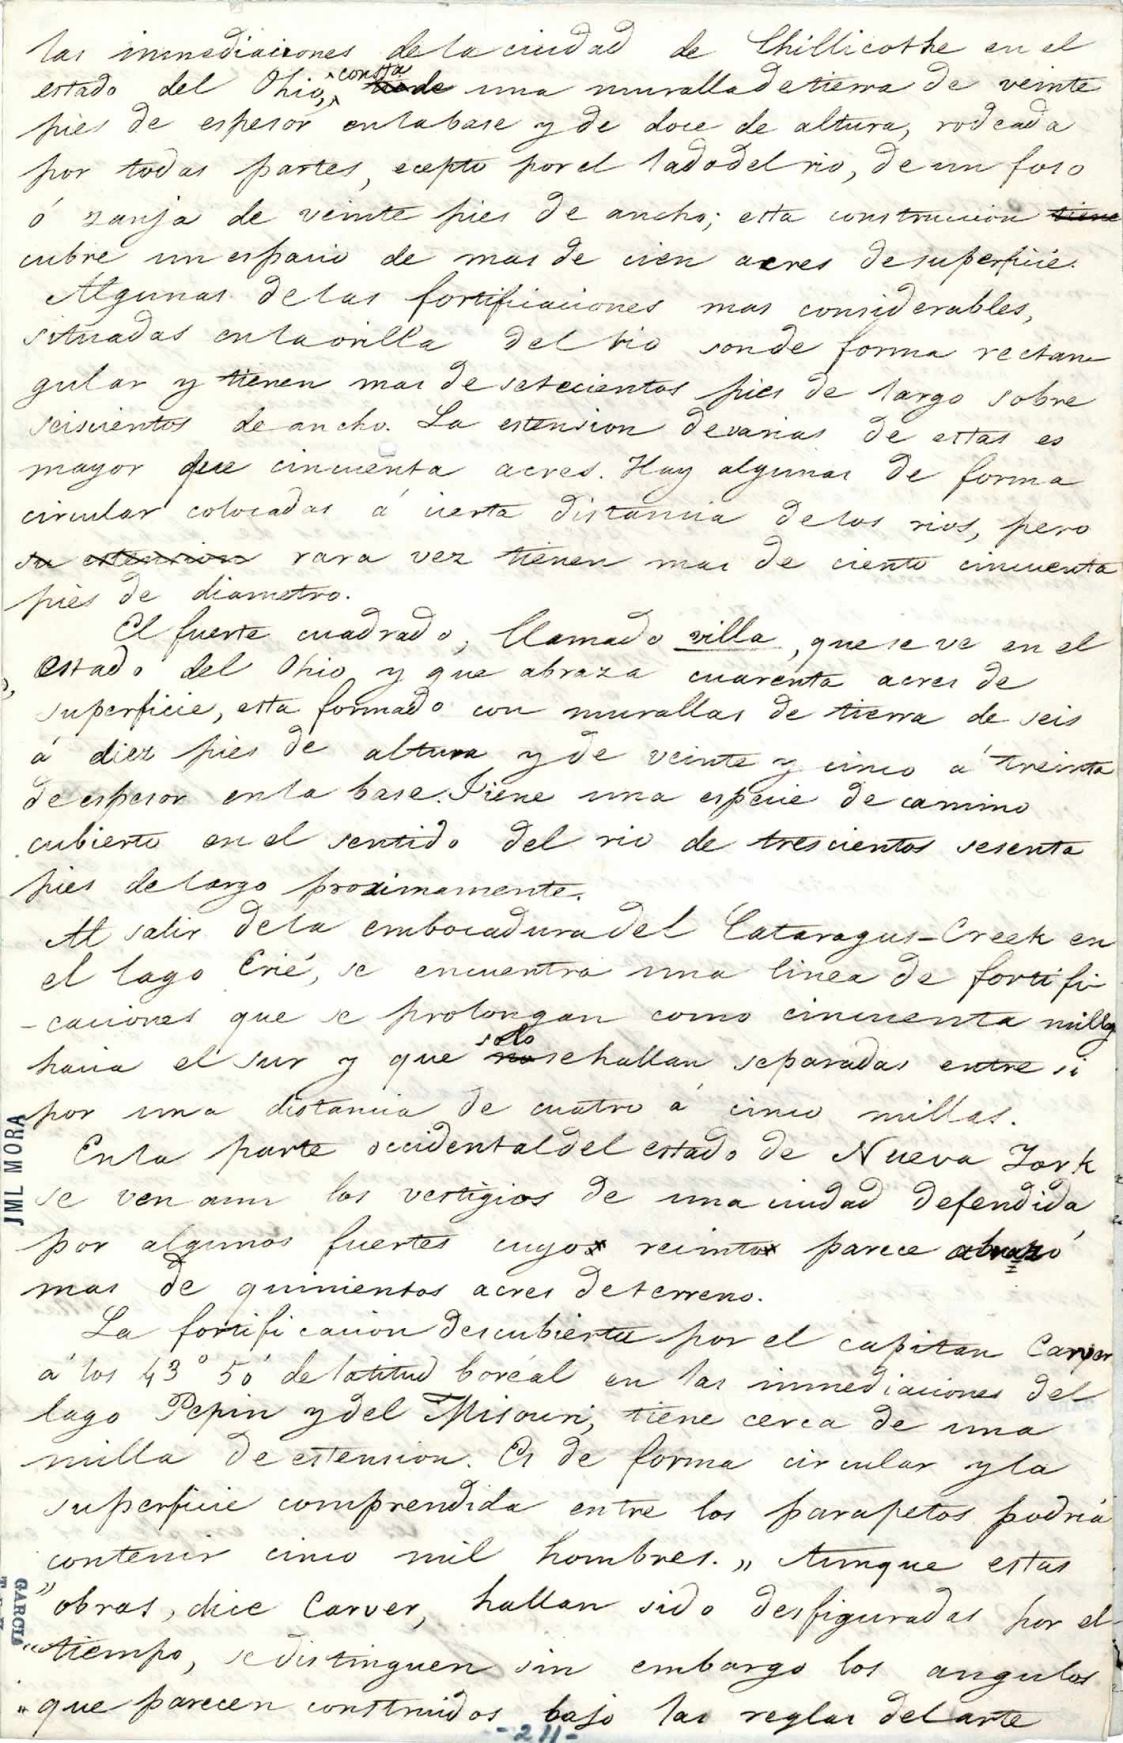 las inmediaciones de la ciudad de Chillicothe en el
estado del Ohio, consta de una muralla de tierra de veinte
pies de espesor en la base y de doce de altura, rodeada
por todas partes, ecepto por el lado del rio, de un foso
ó zanja de veinte pies de ancho; esta construccion tiene
cubre un espacio de mas de cien acres de superficie.
Algunas de las fortificaciones mas considerables,
situadas en la orilla del rio son de forma rectan
gular y tienen mas de setecientos pies de largo sobre
seiscientos de ancho. La estension de varias de estas es
mayor que cincuenta acres. Hay algunas de forma
circular colocadas á cierta distancia de los rios, pero
su estension rara vez tienen mas de ciento cincuenta
pies de diametro.
El fuerte cuadrado, llamado villa, que se ve en el
estado del Ohio y que abraza cuarenta acres de
superficie, esta formado con murallas de tierra de seis
á diez pies de altura y de veinte y cinco á treinta
de espesor en la base. Tiene una especie de camino
cubierto en el sentido del rio de trescientos sesenta
pies de largo proximamente.
Al salir de la embocadura del Cataragus-Creek en
el lago Erié, se encuentra una linea de fortifi
-caciones que se prolongan como cincuenta millas
hacia el sur y que solo no se hallan separadas entre si
por una distancia de cuatro á cinco millas.
En la parte occidental del estado de Nueva York
se ven aun los vestigios de una ciudad defendida
por algunos fuertes cuyo recinto parece abrazó
mas de quinientos acres de terreno.
La fortificacion descubierta por el capitan Carver
á los 43° 50' de latitud boreal en las inmediaciones del
lago Pepin y del Misouri, tiene cerca de una
milla de estension. Es de forma circular y la
superficie comprendida entre los parapetos podria
contener cinco mil hombres. „ Aunque estas
" obras, dice Carver, hallan sido desfiguradas por el
" tiempo, se distinguen sin embargo los angulos
" que parecen construidos bajo las reglas del arte
-211-
JML MORA
GARCIA